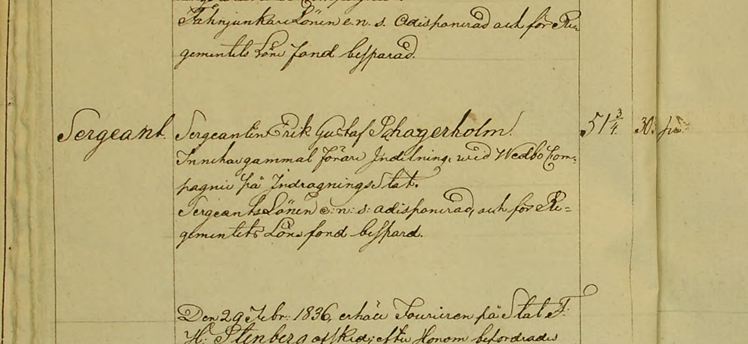 Fahnjunkare Lönen e. n. s. adisponerad och för Re-
gementets Löne fond besparad.
Sergeant. Sergeanten Erik Gustaf Schagerholm. 51 3/4 30.
Innehar gammal förare Indelning, wid Wedbo Com-
pagnie på Indragnings Stat.
Sergeants Lönen e: n: s: adisponerad, och för Re=
gementets Löne fond bespard.
Den 29 Febr: 1836, erhöll Fouriren på Stat F.
H: Stenberg afsked; efter Honom befordrades